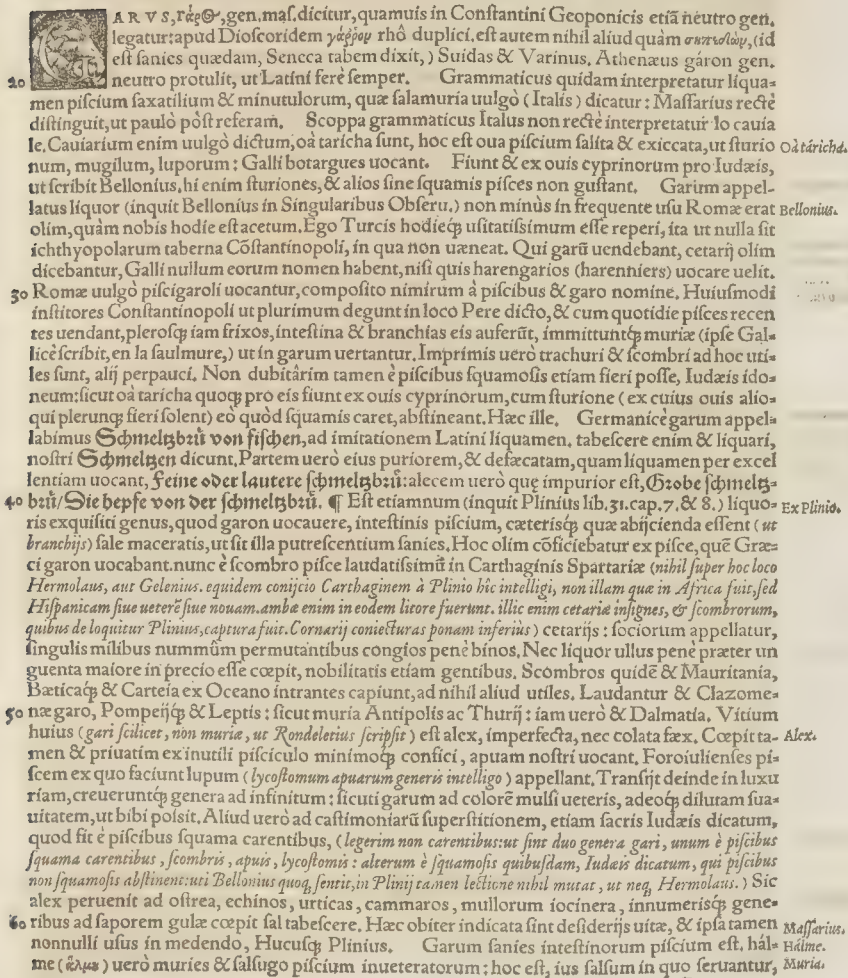 GARVS, γάρος, gen. maſ. dicitur, quamuis in Conſtantini Geoponicis etiã neutro gen.
legatur: apud Dioſcoridem γάῤῥον rhô duplici. eſt autem nihil aliud quàm σηπεδὼν, (id
eſt ſanies quædam, Seneca tabem dixit,) Suidas & Varinus. Athenæus gáron gen.
20 neutro protulit, ut Latini ferè ſemper. Grammaticus quidam interpretatur liqua=
men piſcium ſaxatilium & minutulorum, quæ ſalamuria uulgò (Italis) dicatur: Maſſarius rectè
diſtinguit, ut paulò pòſt referam. Scoppa grammaticus Italus non rectè interpretatur lo cauia
le. Cauiarium enim uulgò dictum, oà taricha ſunt, hoc eſt oua piſcium ſalita & exiccata, ut ſturio Oà táricha.
num, mugilum, luporum: Galli botargues uocant. Fiunt & ex ouis cyprinorum pro Iudæis,
ut ſcribit Bellonius. hi enim ſturiones, & alios ſine ſquamis piſces non guſtant. Garum appel=
latus liquor (inquit Bellonius in Singularibus Obſeru.) non minùs in frequente uſu Romæ erat Bellonius.
olim, quàm nobis hodie eſt acetum. Ego Turcis hodieq́; uſitatiſsimum eſſe reperi, ita ut nulla ſit
ichthyopolarum taberna Cõſtantinopoli, in qua non uæneat. Qui garũ uendebant, cetarij olim
dicebantur, Galli nullum eorum nomen habent, niſi quis harengarios (harenniers) uocare uelit.
30 Romæ uulgò piſcigaroli uocantur, compoſito nimirum à piſcibus & garo nomine. Huiuſmodi
inſtitores Conſtantinopoli ut plurimum degunt in loco Pere dicto, & cum quotidie piſces recen
tes uendant, pleroſq; iam frixos, inteſtina & branchias eis auferũt, immittuntq́; muriæ (ipſe Gal=
licè ſcribit, en la ſaulmure,) ut in garum uertantur. Imprimis uerò trachuri & ſcombri ad hoc uti=
les ſunt, alij perpauci. Non dubitârim tamen è piſcibus ſquamoſis etiam fieri poſſe, Iudæis ido=
neum: ſicut oà taricha quoq; pro eis fiunt ex ouis cyprinorum, cum ſturione (ex cuius ouis alio=
qui plerunq; fieri ſolent) eò quòd ſquamis caret, abſtineant. Hæc ille. Germanicè garum appel=
labimus Schmeltzbrü von fiſchen, ad imitationem Latini liquamen. tabeſcere enim & liquari,
noſtri Schmeltzen dicunt. Partem uerò eius puriorem, & defæcatam, quam liquamen per excel
lentiam uocant, Feine oder lautere ſchmeltzbrü: alecem uerò quę impurior eſt, Grobe ſchmeltz=
40 brü/ Die hepfe von der ſchmeltzbrü. ¶ Eſt etiamnum (inquit Plinius lib. 31. cap. 7. & 8.) liquo= Ex Plinio.
ris exquiſiti genus, quod garon uocauere, inteſtinis piſcium, cæterisq́; quæ abijcienda eſſent (ut
branchijs) ſale maceratis, ut ſit illa putreſcentium ſanies. Hoc olim cõficiebatur ex piſce, quẽ Græ=
ci garon uocabant. nunc è ſcombro piſce laudatiſsimũ in Carthaginis Spartariæ (nihil ſuper hoc loco
Hermolaus, aut Gelenius. equidem conijcio Carthaginem à Plinio hîc intelligi, non illam quæ in Africa fuit, ſed
Hiſpanicam ſiue ueterẽ ſiue nouam. ambæ enim in eodem litore fuerunt. illic enim cetariæ inſignes, & ſcombrorum,
quibus de loquitur Plinius, captura fuit. Cornarij coniecturas ponam inferius) cetarijs: ſociorum appellatur,
ſingulis milibus nummûm permutantibus congios penè binos. Nec liquor ullus penè præter un
guenta maiore in precio eſſe cœpit, nobilitatis etiam gentibus. Scombros quidẽ & Mauritania,
Bæticaq́; & Carteia ex Oceano intrantes capiunt, ad nihil aliud utiles. Laudantur & Clazome=
50 næ garo, Pompeijq́; & Leptis: ſicut muria Antipolis ac Thurij: iam uerò & Dalmatia. Vitium
huius (gari ſcilicet, non muriæ, ut Rondeletius ſcripſit) eſt alex, imperfecta, nec colata fæx. Cœpit ta= Alex.
men & priuatim ex inutili piſciculo minimoq́; confici, apuam noſtri uocant. Foroiulienſes pi=
ſcem ex quo faciunt lupum (lycoſtomum apuarum generis intelligo) appellant. Tranſijt deinde in luxu
riam, creueruntq́; genera ad infinitum: ſicuti garum ad colorẽ mulſi ueteris, adeoq́; dilutam ſua=
uitatem, ut bibi poſsit. Aliud uerò ad caſtimoniarũ ſuperſtitionem, etiam ſacris Iudæis dicatum,
quod fit è piſcibus ſquama carentibus, (legerim non carentibus: ut ſint duo genera gari, unum è piſcibus
ſquama carentibus, ſcombris, apuis, lycoſtomis: alterum è ſquamoſis quibuſdam, Iudæis dicatum, qui piſcibus
non ſquamoſis abſtinent: uti Bellonius quoq; ſentit, in Plinij tamen lectione nihil mutat, ut neq; Hermolaus.) Sic
alex peruenit ad oſtrea, echinos, urticas, cammaros, mullorum iocinera, innumerisq́; gene=
60 ribus ad ſaporem gulæ cœpit ſal tabeſcere. Hæc obiter indicata ſint deſiderijs uitæ, & ipſa tamen Maſſarius.
nonnulli uſus in medendo, Hucuſq; Plinius. Garum ſanies inteſtinorum piſcium eſt, hál= Hálme.
me (ἅλμη) uerò muries & ſalſugo piſcium inueteratorum: hoc eſt, ius ſalſum in quo ſeruantur, Muria.